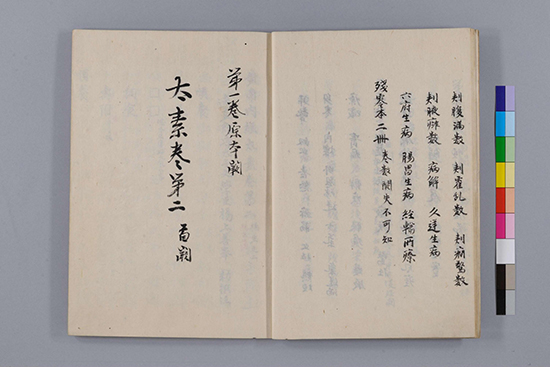 刺腹満数 刺霍乱数 刺癇驚数
刺腋痈数 病解 久逆生病
六府生病 腸胃生病 経輸所療
残巻本二冊 巻数闕失不可知
第一巻原本闕
太素巻第二 首闕